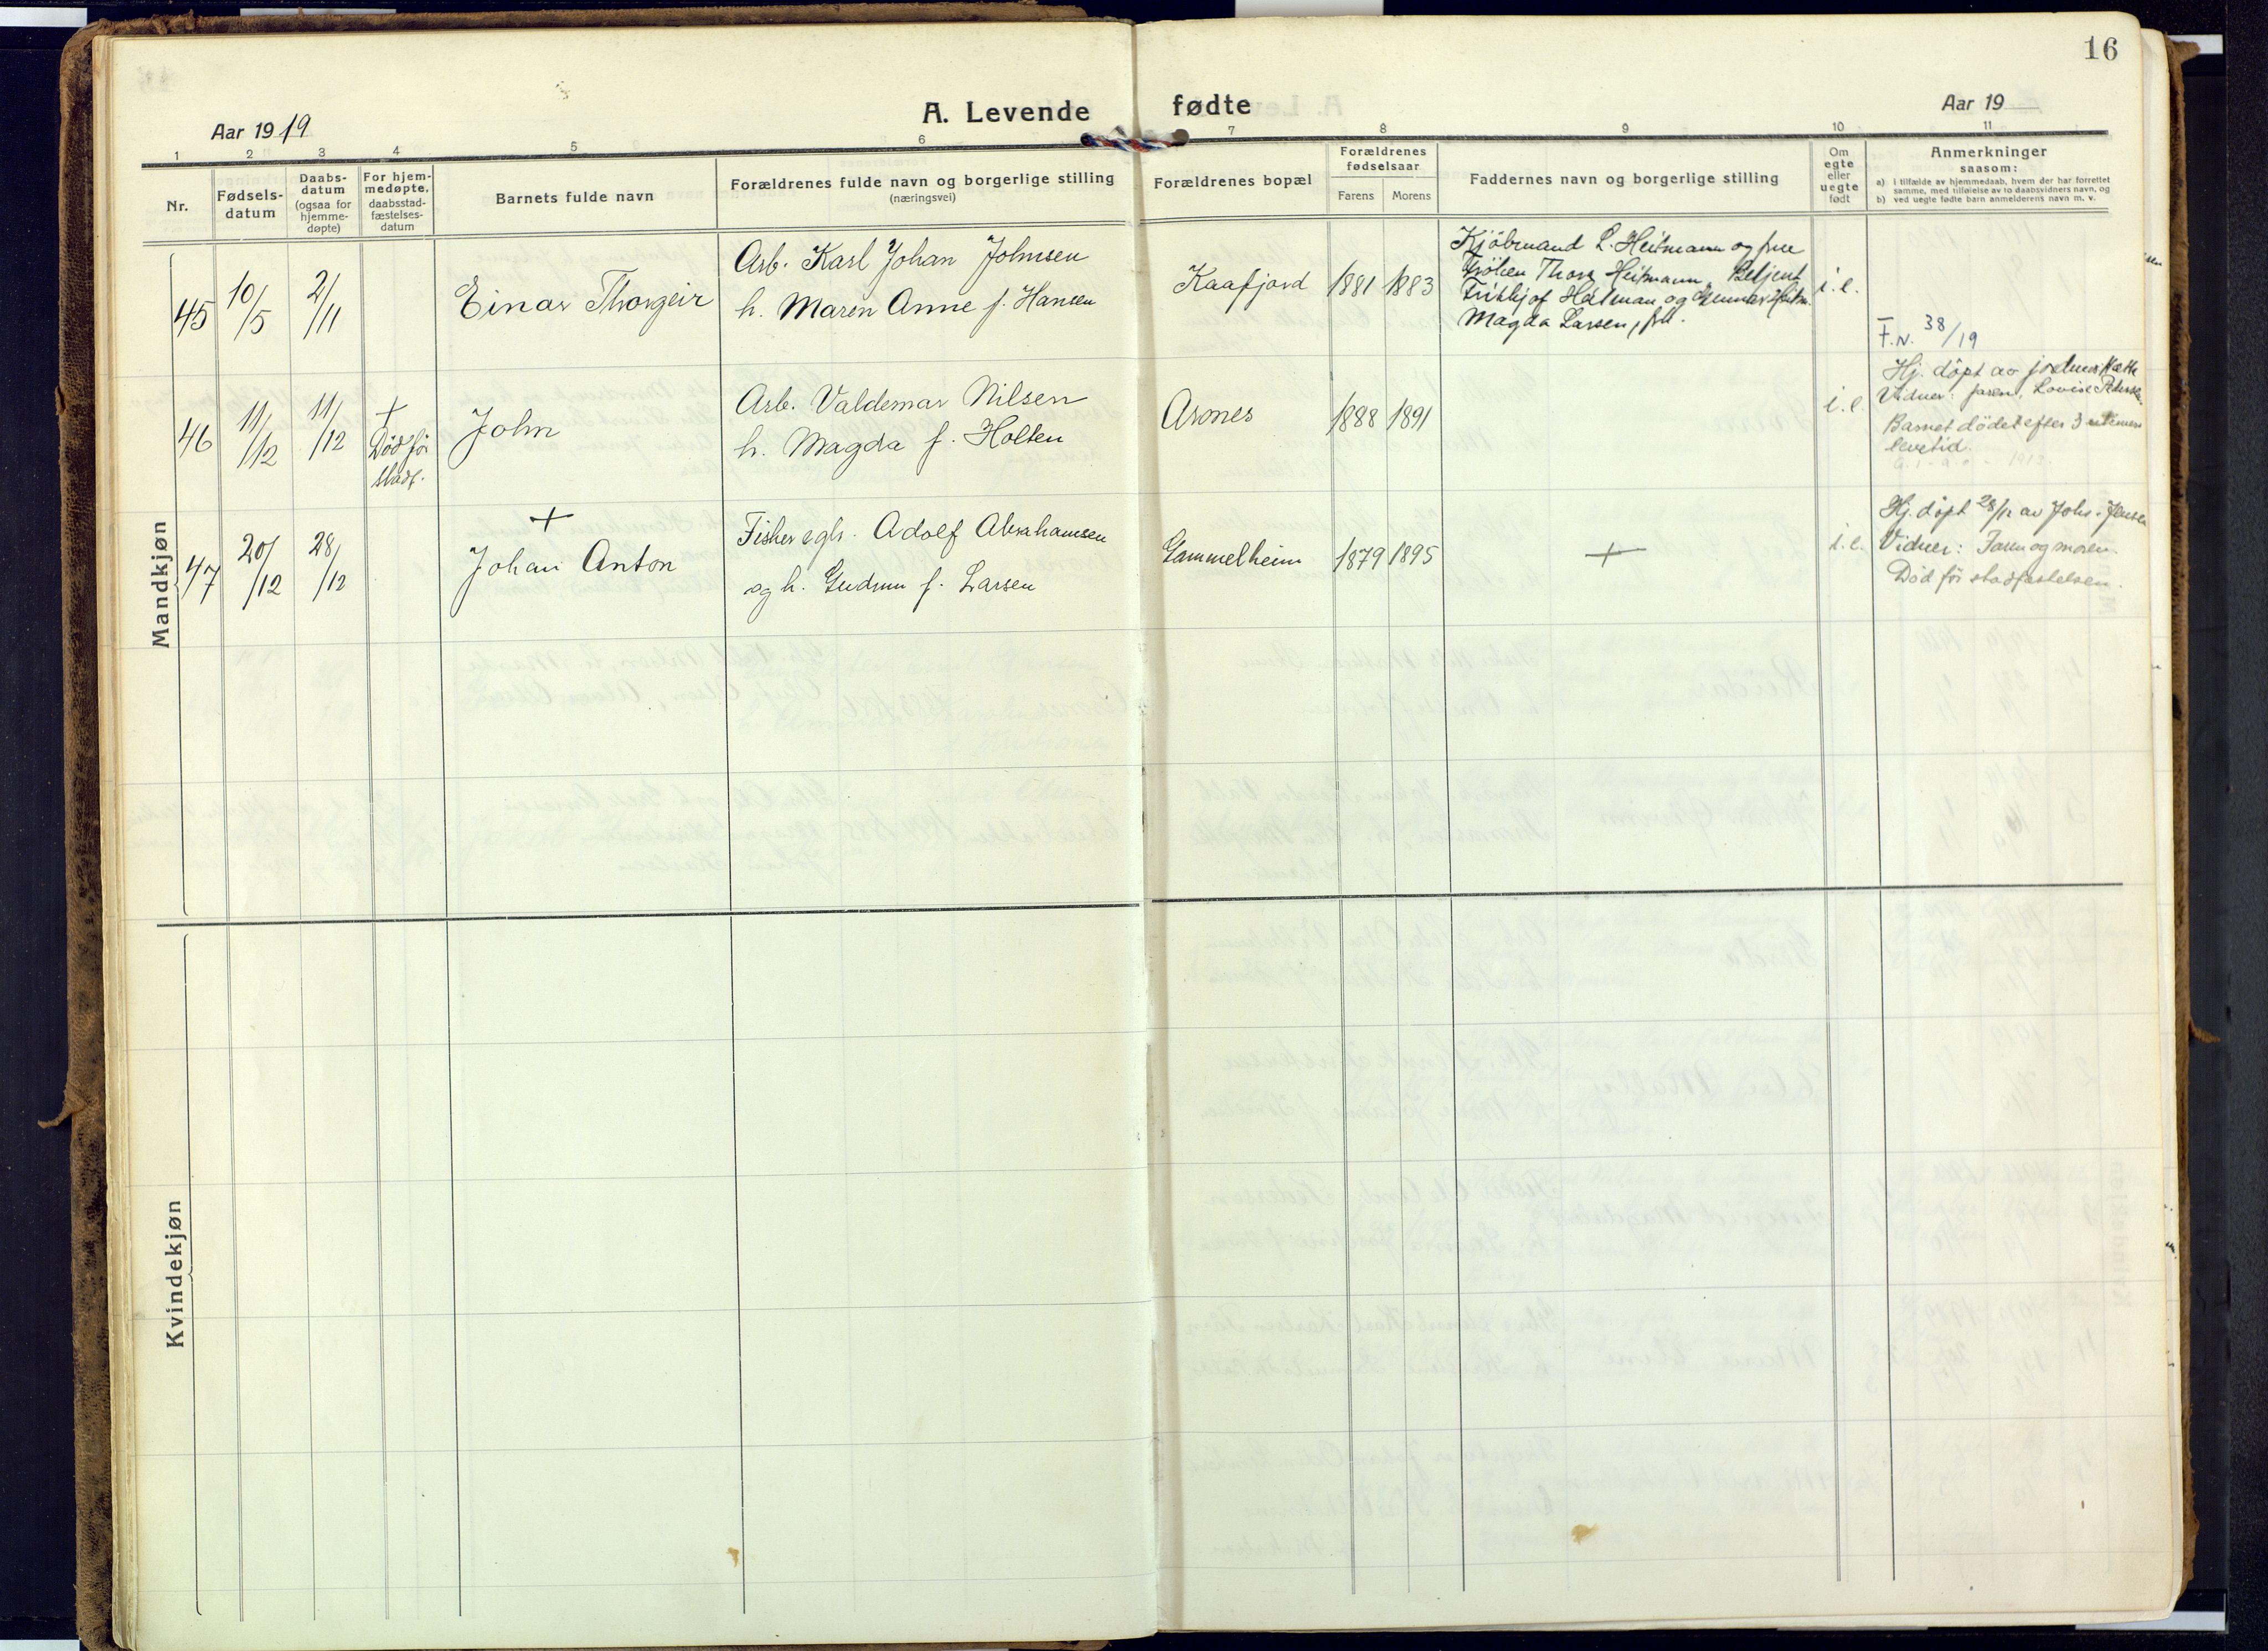 16
A. Levende fødte
Aar 1919
Aar 19
1 2 3 4 5 6 7 8 9 10 11
Nr.
Fødsels-
datum
Daabs-
datum
(ogsaa for
hjemme-
døpte)
For hjem-
medøpte,
daabsstad-
fæstelses-
datum
Barnets fulde navn
Forældrenes fulde navn og borgerlige stilling
(næringsvei)
Forældrenes bopæl
Forældrenes
fødselsaar
Farens Morens
Faddernes navn og borgerlige stilling
Om
egte
eller
uegte
født
Anmerkninger
saasom:
a) i tilfælde av hjemmedaab, hvem der har forrettet
samme, med tilføielse av to daabsvidners navn, og
b) ved uegte fødte barn anmelderens navn m. v.
Mandkjøn
45
10/5
2/11
Einar Thorgeir
Arb. Karl Johan Johnsen
h. Maren Anne f. Hansen
Kaafjord
1881 1883
Kjöbmand L. Heitmann og frue
Fröken Thora Heitmann, Betjent
Fritkjof Heitman og Gunnar Heitm.
Magda Larsen, frk.
i.e.
F.N. 38/19
46
11/12
11/12
+
Död för
stadf.
John
Arb. Valdemar Nilsen
h. Magda f. Holten
Aronnes
1888 1891
i.e.
Hj. döpt av jordmor
Vidner: faren, Lovise
Barnet dödet efter 3
levetid.
47
20/12
28/12
+
Johan Anton
Fisker egb. Adolf Abrahamsen
og h. Gudrun f. Larsen
Gammelheim
1879 1895
+
i.e.
Hj. döpt 28/12 av Johs. Jensen
Vidner: Faren og moren.
Död för stadfæstelsen.
Kvindekjøn